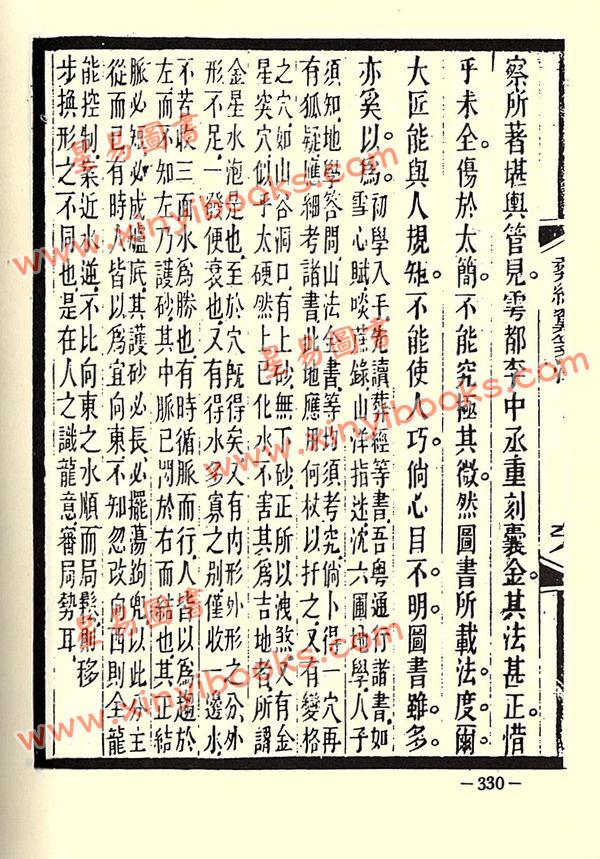 察所著堪輿管見雩都李中丞重刻囊金其法甚正惜
乎未全傷於太簡不能究極其微然圖書所載法度爾
大匠能與人規矩不能使人巧倘心目不明圖書雖多
亦奚以為初學入手先讀葬經等書吾粵通行諸書如
雪心賦啖蔗錄山洋指迷沈六圃地學人子
須知地學答問山法全書等均須考究倘卜得一穴再
有狐疑匯細考諸書此地應用何杖以扦之又有變格
之穴如山谷洞口有上砂無下砂正所以洩煞又有金
星突穴似乎太硬然上已化水不害其為吉地者所謂
金星水泡是也至於穴既得矣又有內形外形之分外
形不足一發便衰也又有得水多寡之別僅收一邊水
不若收三面水為勝也有時循脈而行人皆以為過於
左而不知左乃護砂其中脈已閃於右而結也其正結
脈必短必成爐底其護砂必長必擺蕩鉤兜以此分主
從而已有時人皆以為宜向東不知忽改向西則全龍
能控制案近水逆不比向東之水順而局鬆則移
步換形之不同也是在人之識龍意審局勢耳
星易圖書
www.xinyibooks.com
星易圖書
www.xinyibooks.com
星易圖書
www.xinyibooks.com
—330—